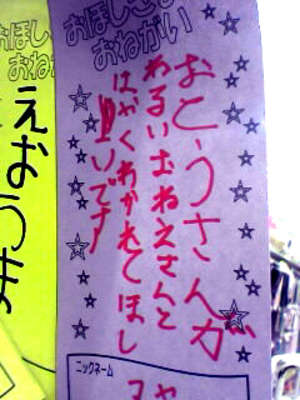 おほしさ
おねがい
おとうさんが
わるいおねえさんと
はやくわかれてほし
いです
ニックネーム
おほし
おねがい